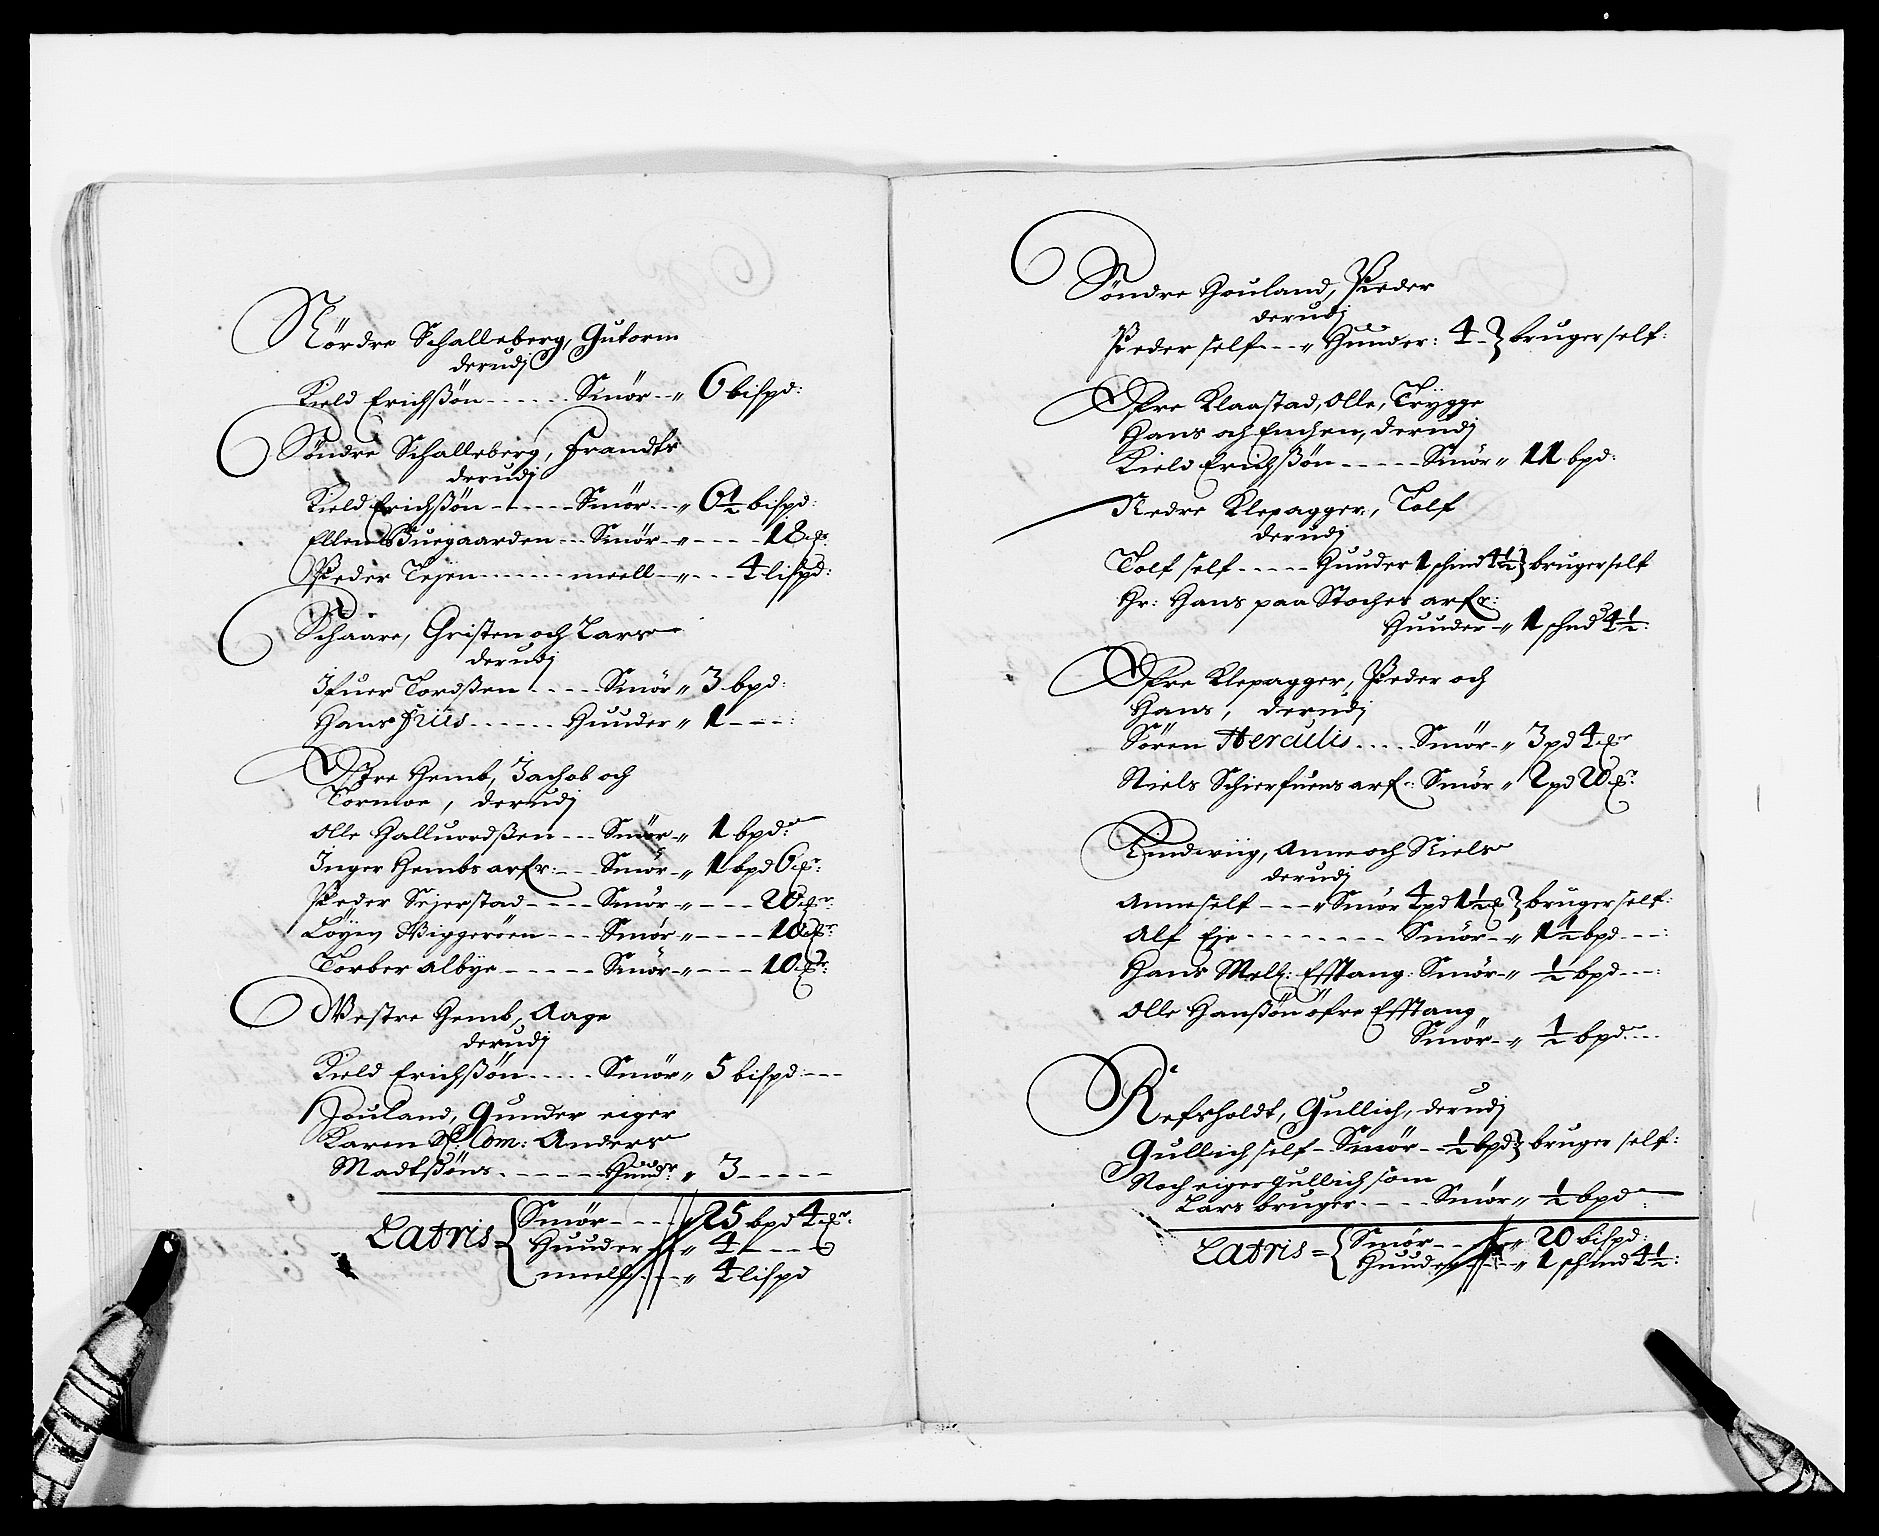 Nördre Schalleberg, Gutorm
derudj
Kield Erichßön ------ Smör -- „ 6 bispd:
Söndre Schalleberg, Frandts
derudj
Kield Erichßön ------ Smör -- „ 6½ bispd:
Ellen Buegaarden --- Smör -- „ ---- 18 mr:
Peder Tejen ------ meell -- „ --- 4 lispd:
Schaare, Christen och Lars
derudj
Ifuer Tordßen ---- Smör „ 3 bpd:
Hans Friis ------ Huuder „ 1 ---:
Östre Hemb, Jachob och
Tormoe, derudj
Olle Halluordßen --- Smör -- „ 1 bpd:
Inger Hembs arfr: --- Smör -- „ 1 bpd 6 mr:
Peder Sejerstad ---- Smör -- „ --- 20 mr:
Löyen Wiggeröen --- Smör -- „ ---- 10 mr:
Torber Albye ----- Smör -- „ --- 10 mr:
Westre Hemb, Aage
derudj
Kield Erichßön ----- Smör „ 5 bispd: ---
Jouland, Gunder eiger
Karen Sl: Com: Anders
Madtßöns ------ Huudr: „ 3 -----
Latris = Smör ---- „ 25 bpd 4 mr:
Huuder -- „ 4 ----
meell --- „ 4 lispd
Söndre Houland, Peder
derudj
Peder self --- „ Huuder: 4 -} bruger self:
Öfre Klaastad, Olle, Trygge
Hans och Enchen, derudj
Kield Erichßön ----- Smör „ 11 bpd:
Nedre Klepagger, Tolf
derudj
Tolf self ----- Huuder 1 schind 4½} bruger self
Hr: Hans paa Stochet arfr:
Huuder -- „ 1 schnd 4½:
Öfre Klepagger, Peder och
Hans, derudj
Sören Herculis ---- Smör -- „ 3 pd 4 mr
Niels Schierfuens arfr: Smör „ 2 pd 20 mr:
Lindwiig, Anne och Niels
derudj
Anne self --- „ Smör 4 pd 1½ mr} bruger self:
Alf Eje -------- Smör -- „ 1½ bpd ---:
Hans Mell: Efftang: Smör -- „ ½ bpd ---:
Olle Hanßön öfre Efftang
Smör -- „ ½ bpd: ---
Refsholdt, Gullich, derudj
Gullich self -- Smör -- ½ bpd} bruger self:
Noch eiger Gullich som
Lars bruger ---- Smör „ ½ bpd:
Latris = Smör --- „ 20 bispd:
Huuder --- „ 1 schind 4½: